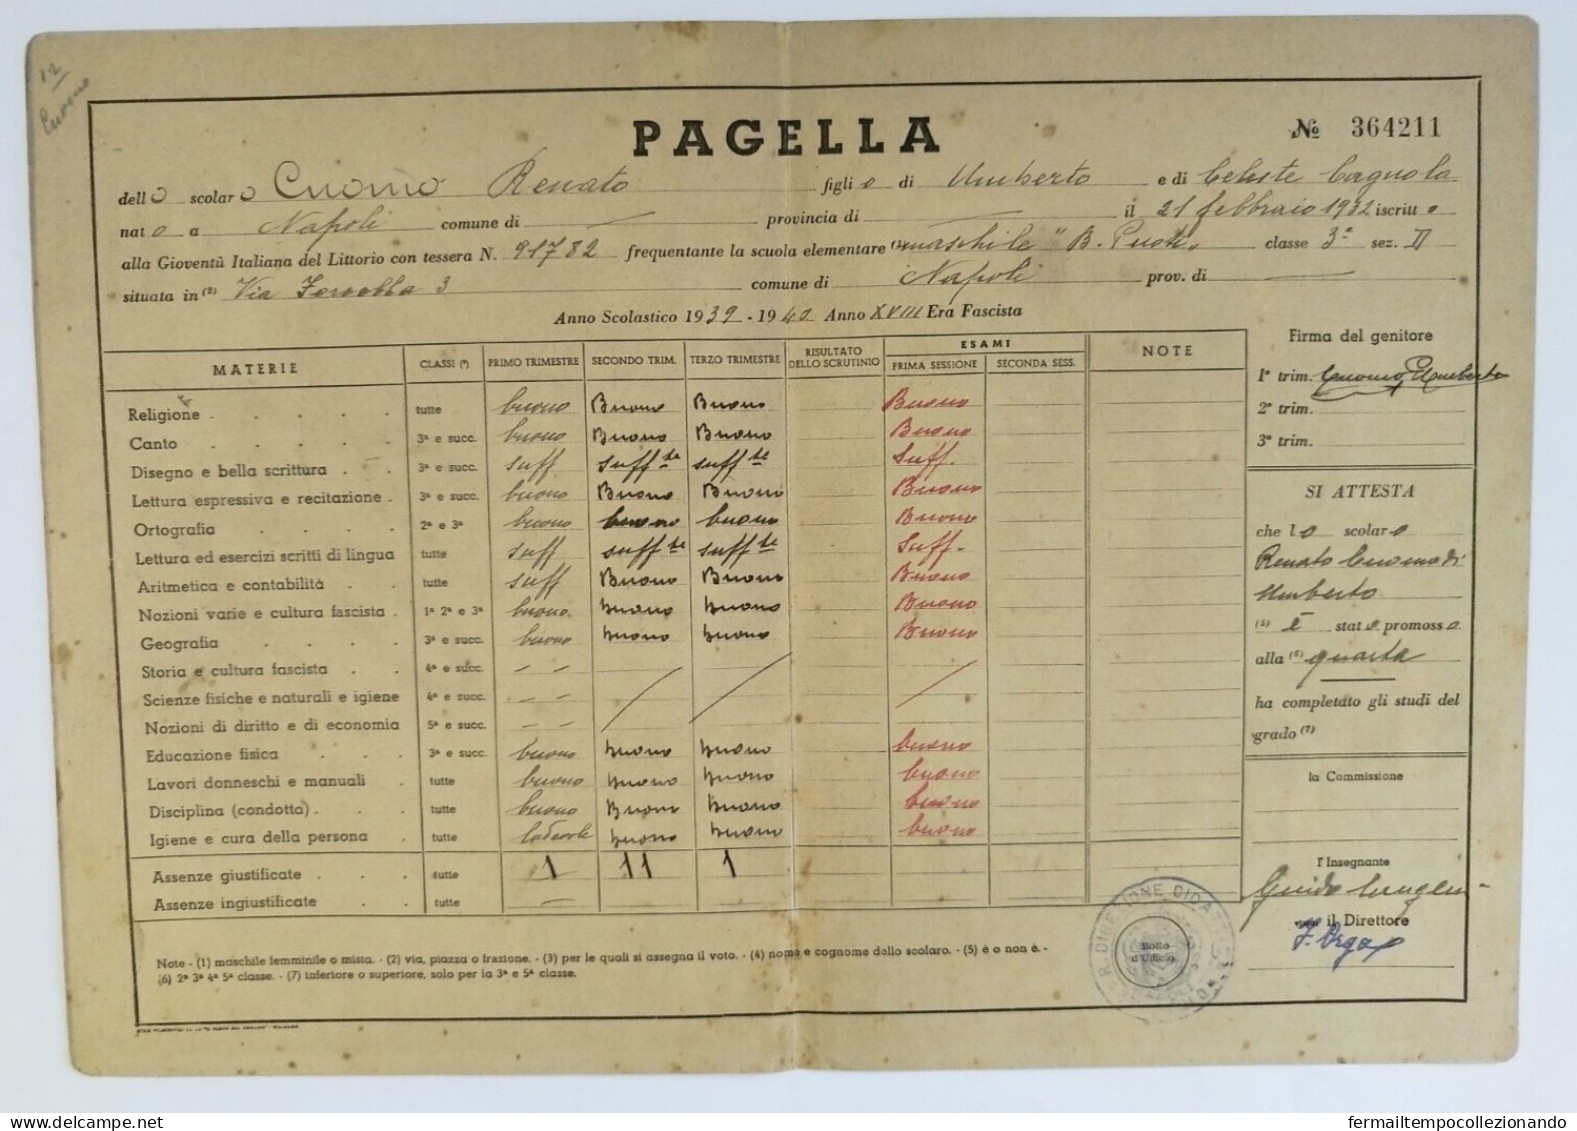 12
Cuomo
PAGELLA
№ 364211
dello scolaro Cuomo Renato figlio di Umberto e di Celeste Cagnola
nato a Napoli comune di — provincia di — il 21 febbraio 1932 iscritto
alla Gioventù Italiana del Littorio con tessera N. 91782 frequentante la scuola elementare (1) maschile "B. Puoti" classe 3ª sez. D
situata in (2) Via 3 comune di Napoli prov. di —
Anno Scolastico 1939 - 1940 Anno XVIII Era Fascista
MATERIE CLASSI (3) PRIMO TRIMESTRE SECONDO TRIM. TERZO TRIMESTRE RISULTATO DELLO SCRUTINIO ESAMI PRIMA SESSIONE SECONDA SESS. NOTE
Religione tutte buono Buono Buono Buono
Canto 3ª e succ. buono Buono Buono Buono
Disegno e bella scrittura 3ª e succ. suff suff te suff te Suff.
Lettura espressiva e recitazione 3ª e succ. buono Buono Buono Buono
Ortografia 2ª e 3ª buono buono buono Buono
Lettura ed esercizi scritti di lingua tutte suff suff te suff te Suff.
Aritmetica e contabilità tutte suff Buono Buono Buono
Nozioni varie e cultura fascista 1ª 2ª e 3ª buono buono buono Buono
Geografia 3ª e succ. buono buono buono Buono
Storia e cultura fascista 4ª e succ. — —
Scienze fisiche e naturali e igiene 4ª e succ. — — / / /
Nozioni di diritto e di economia 5ª e succ. — —
Educazione fisica 3ª e succ. buono buono buono buono
Lavori donneschi e manuali tutte buono buono buono buono
Disciplina (condotta) tutte buono Buono buono buono
Igiene e cura della persona tutte lodevole buono buono buono
Assenze giustificate tutte 1 11 1
Assenze ingiustificate tutte —
Note - (1) maschile femminile o mista. - (2) via, piazza o frazione. - (3) per le quali si assegna il voto. - (4) nome e cognome dello scolaro. - (5) è o non è. -
(6) 2ª 3ª 4ª 5ª classe. - (7) inferiore o superiore, solo per la 3ª e 5ª classe.
Firma del genitore
1º trim. Cuomo Umberto
2º trim.
3º trim.
SI ATTESTA
che lo scolaro
Renato Cuomo di
Umberto
(5) È stato promosso
alla (6) quarta
ha completato gli studi del
grado (7)
la Commissione
l'Insegnante
Guido
il Direttore
R. DIREZIONE
Bollo
d'Ufficio
fermailtempocollezionando